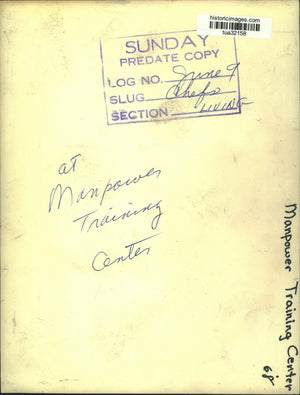 historicimages.com
tua32158
SUNDAY
PREDATE COPY
LOG NO. June 9
SLUG Chefs
SECTION LIVING
at
Manpower
Training
Center
Manpower Training Center
68